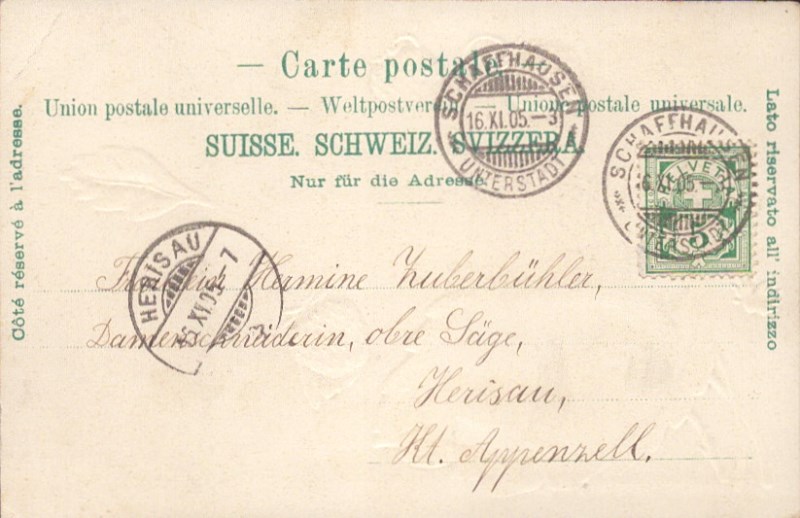 — Carte postale.
Union postale universelle. — Weltpostverein — Unione postale universale.
SUISSE. SCHWEIZ. SVIZZERA.
Nur für die Adresse.
Côté réservé à l'adresse.
Lato riservato all' indirizzo
SCHAFFHAUSEN
16.XI.05.–3
UNTERSTADT
SCHAFFHAUSEN
16.XI.05.
UNTERSTADT
HELVETIA
5
HERISAU
16.XI.05. 7
Fräulein Hermine Zuberbühler,
Damenschneiderin, obre Säge,
Herisau,
Kt. Appenzell.